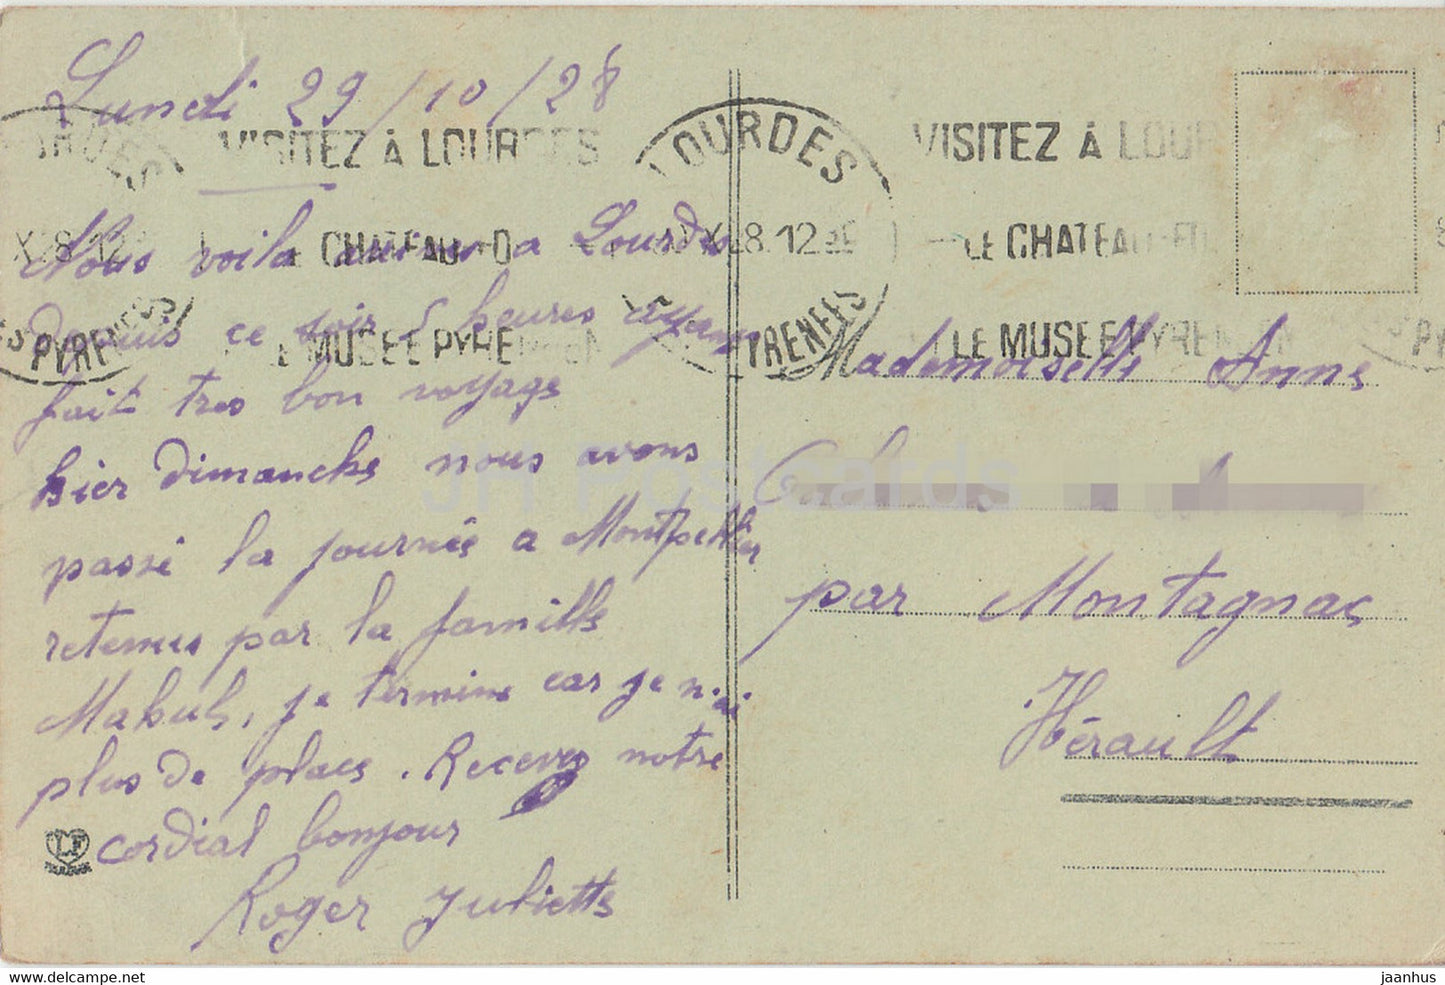 Lundi 29/10/28
VISITEZ À LOURDES
LE CHATEAU-FO
LE MUSEE PYRENEEN
Nous voila a Lourdes
Depuis ce soir 5 heures ayant
fait tres bon voyage
hier dimanche nous avons
passé la journée a Montpellier
retenus par la famille
Mabuls, je termine car je n'ai
plus De place. Recevez notre
cordial bonjour
Roger Juliette
LF
LOURDES
X.28.12
PYRENEES
VISITEZ À LOUR
LE CHATEAU-FO
LE MUSEE PYRENEEN
Mademoiselle Anne
par Montagnac
Hérault
JH Postcards
www.delcampe.net
jaanhus